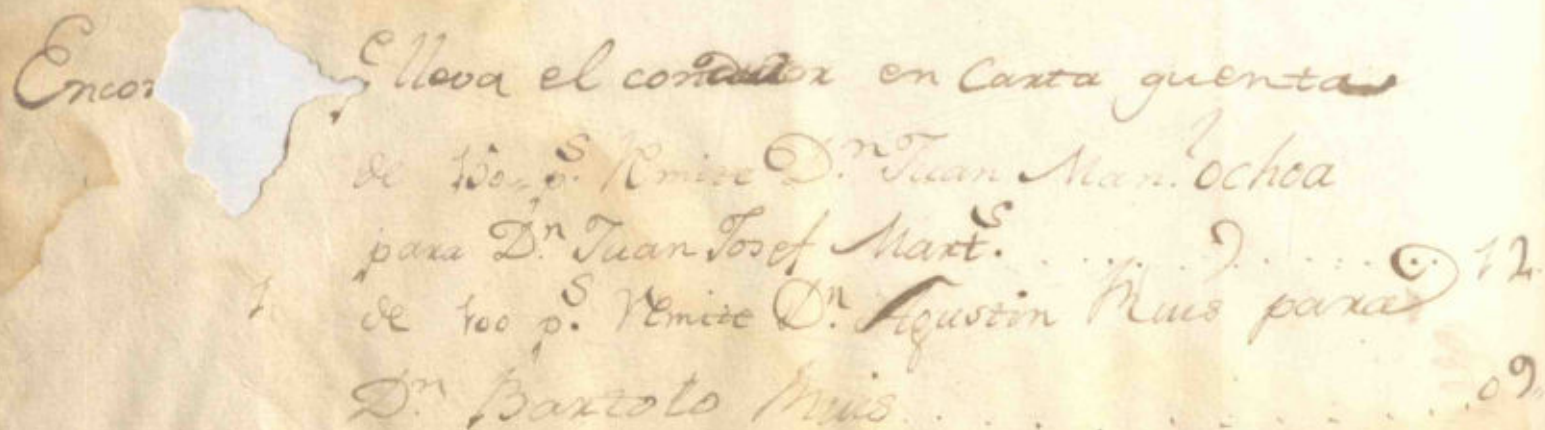 Encor lleva el condutor en Carta quenta
de 130 p.s Remite D.n Juan Man.l Ochoa
para D.n Juan Josef Mart.s . . . . . . . . . . 12
1. de 100 p.s Remite D.n Agustin Ruis para
D.n Bartolo Ruis . . . . . . . . . . 09